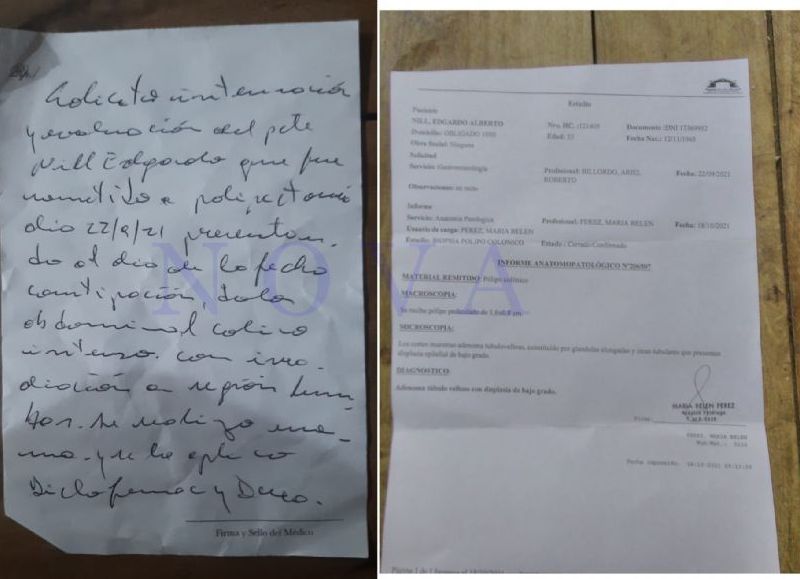 Solicito internación
y evaluación del pte
Nill Edgardo que fue
sometido a polipectomia
dia 22/9/21 presentan-
do al dia de la fecha
constipación, dolor
abdominal colico
intenso con irra-
diación a región lum-
bar. Se realizo ene-
ma y se le aplico
Diclofenac y Dexa.
Firma y Sello del Médico
NOVA
Estudio
Paciente
NILL, EDGARDO ALBERTO
Nro. HC. :121405
Documento :DNI
Domicilio: OBLIGADO
Edad: 53
Fecha Nac.:
Obra Social: Ninguna
Solicitud
Servicio: Gastroenterología
Profesional: BILLORDO, ARIEL ROBERTO
Fecha: 22/09/2021
Observaciones:
Informe
Servicio: Anatomía Patológica
Profesional: PEREZ, MARIA BELEN
Fecha: 18/10/2021
Usuario de carga: PEREZ, MARIA BELEN
Estudio: BIOPSIA POLIPO COLONICO
Estado: Cerrado/Confirmado
INFORME ANATOMOPATOLÓGICO
MATERIAL REMITIDO: Pólipo colónico
MACROSCOPIA:
Se recibe pólipo pediculado de 1,0x0,8 cm.
MICROSCOPIA:
Los cortes muestran adenoma túbulovelloso, constituido por glándulas elongadas y otras tubulares que presentan
displasia epitelial de bajo grado.
DIAGNOSTICO:
Adenoma túbulo velloso con displasia de bajo grado.
MARIA BELEN PEREZ
Firma:
PEREZ, MARIA BELEN
Fecha impresión: 18/10/2021
Página 1 de 1